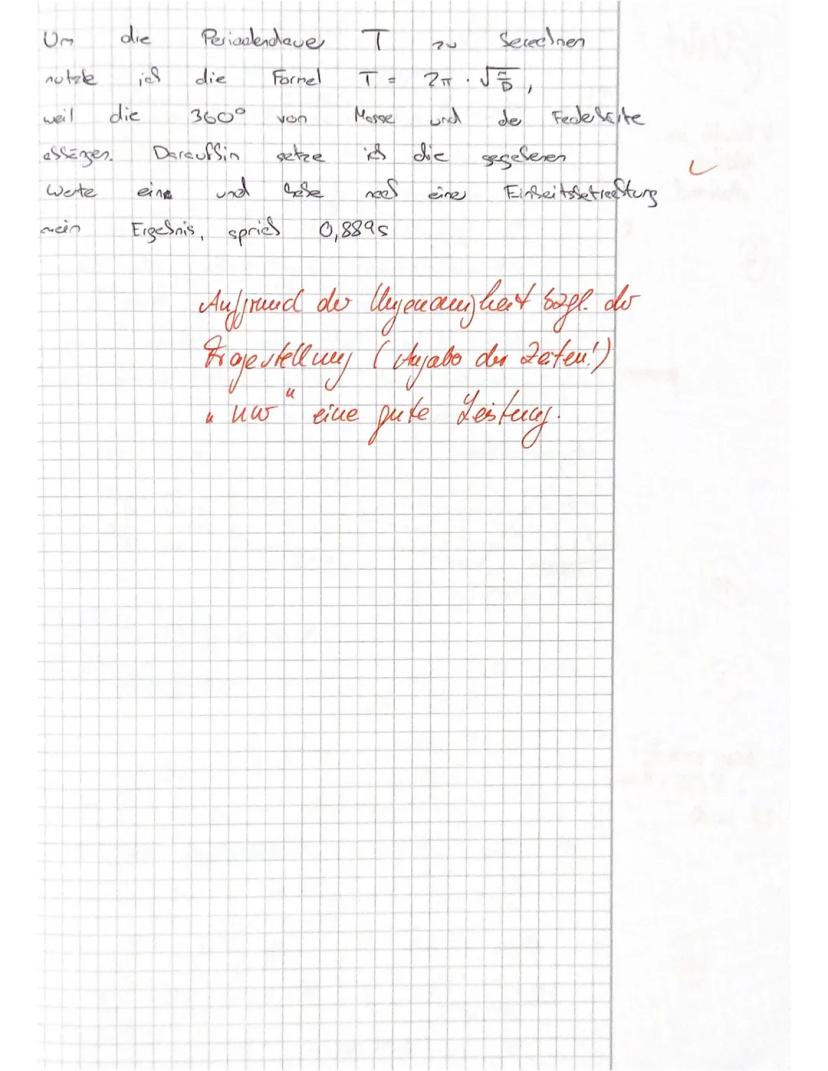 Um die Periodendauer T zu berechnen
nutze ich die Formel T = 2π · √(m/D),
weil die 360° von Masse und der Federhärte
abhängen. Daraufhin setze ich die gegebenen
Werte eine und habe nach einer Einheitsbetrachtung
mein Ergebnis, sprich 0,889s
Aufgrund der Ungenauigkeit bzgl. der
Fragestellung (Angabe der Zeiten!)
"nur" eine gute Leistung.